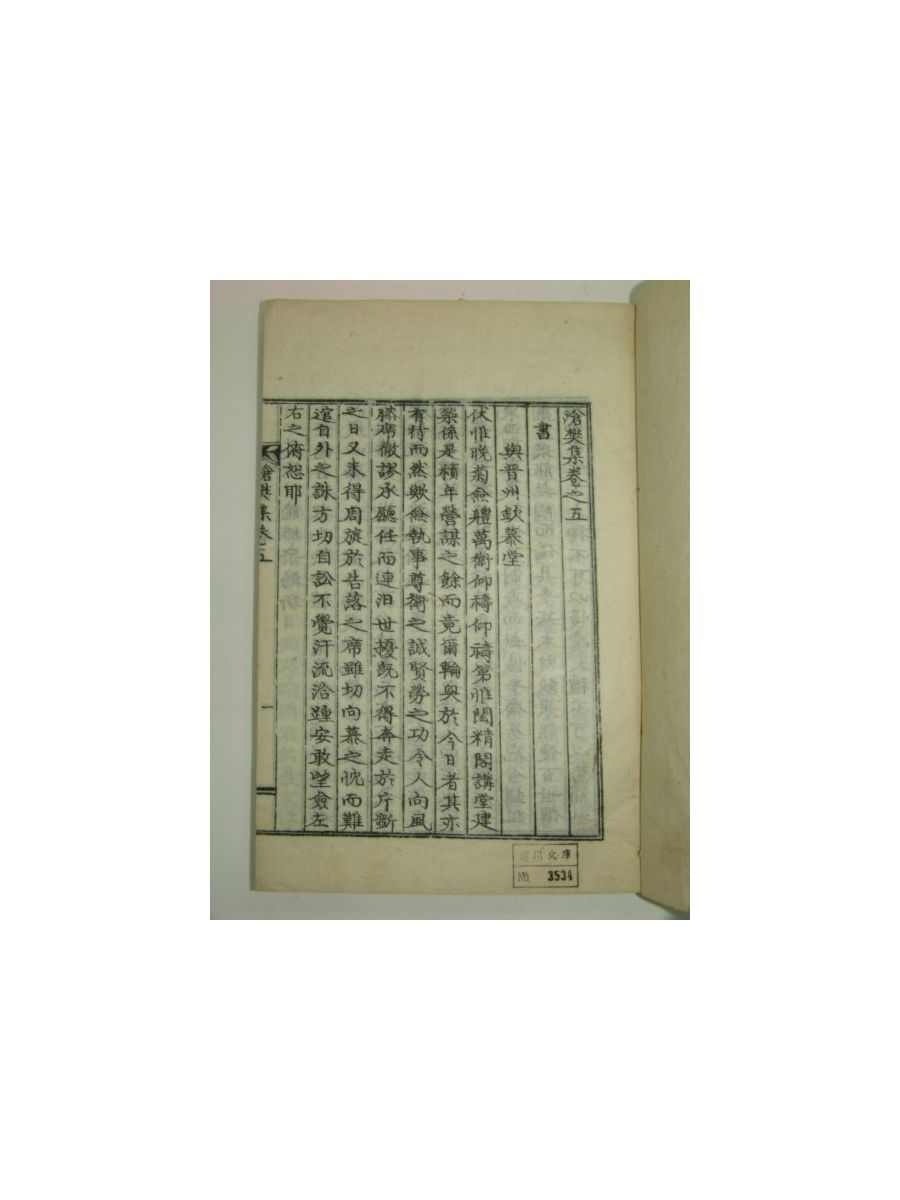 滄樊集卷之五
書
與晋州欽慕堂
伏惟晚菊僉軆萬衛仰禱仰禱第惟閎精閣講堂建
築係是積年營謀之餘而竟爾輪奐於今日者其亦
有待而然歟僉執事尊衛之誠賢勞之功令人向風
膝席徽謬承聽任而連汨世擾旣不得奔走於斤斲
之日又未得周旋於告落之席雖切向慕之忱而難
逭自外之誅方切自訟不覺汗流洽踵安敢望僉左
右之俯恕耶
滄樊集卷五
一
文庫
No. 3534